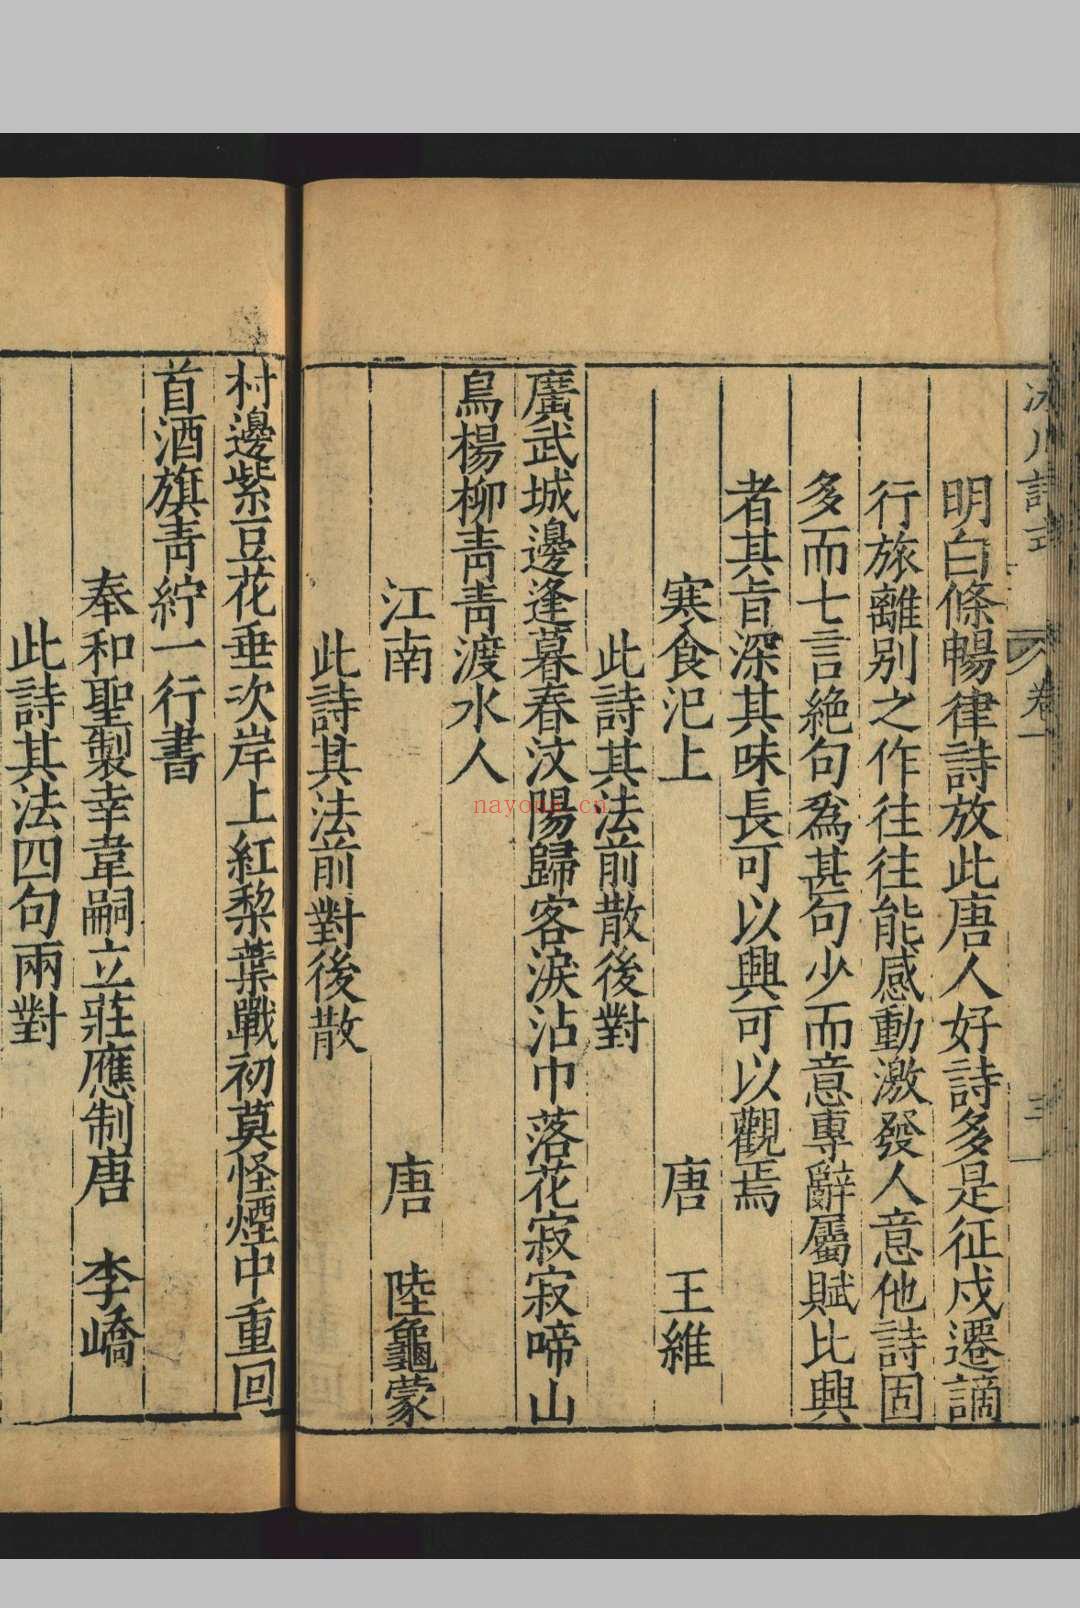 冰川詩式
卷一
三
明白條暢律詩放此唐人好詩多是征戍遷謫
行旅離別之作往往能感動激發人意他詩固
多而七言絕句爲甚句少而意專辭屬賦比興
者其旨深其味長可以興可以觀焉
寒食汜上 唐 王維
此詩其法前散後對
廣武城邊逢暮春汶陽歸客淚沾巾落花寂寂啼山
鳥楊柳靑靑渡水人
江南 唐 陸龜蒙
此詩其法前對後散
村邊紫豆花垂次岸上紅黎葉戰初莫怪煙中重回
首酒旗靑紵一行書
奉和聖製幸韋嗣立莊應制唐 李嶠
此詩其法四句兩對
nayona.cn